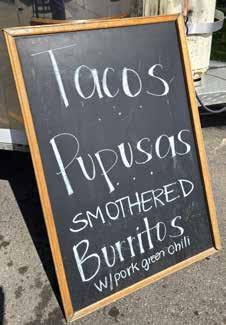 Tacos
Pupusas
SMOTHERED
Burritos
w/pork green chili